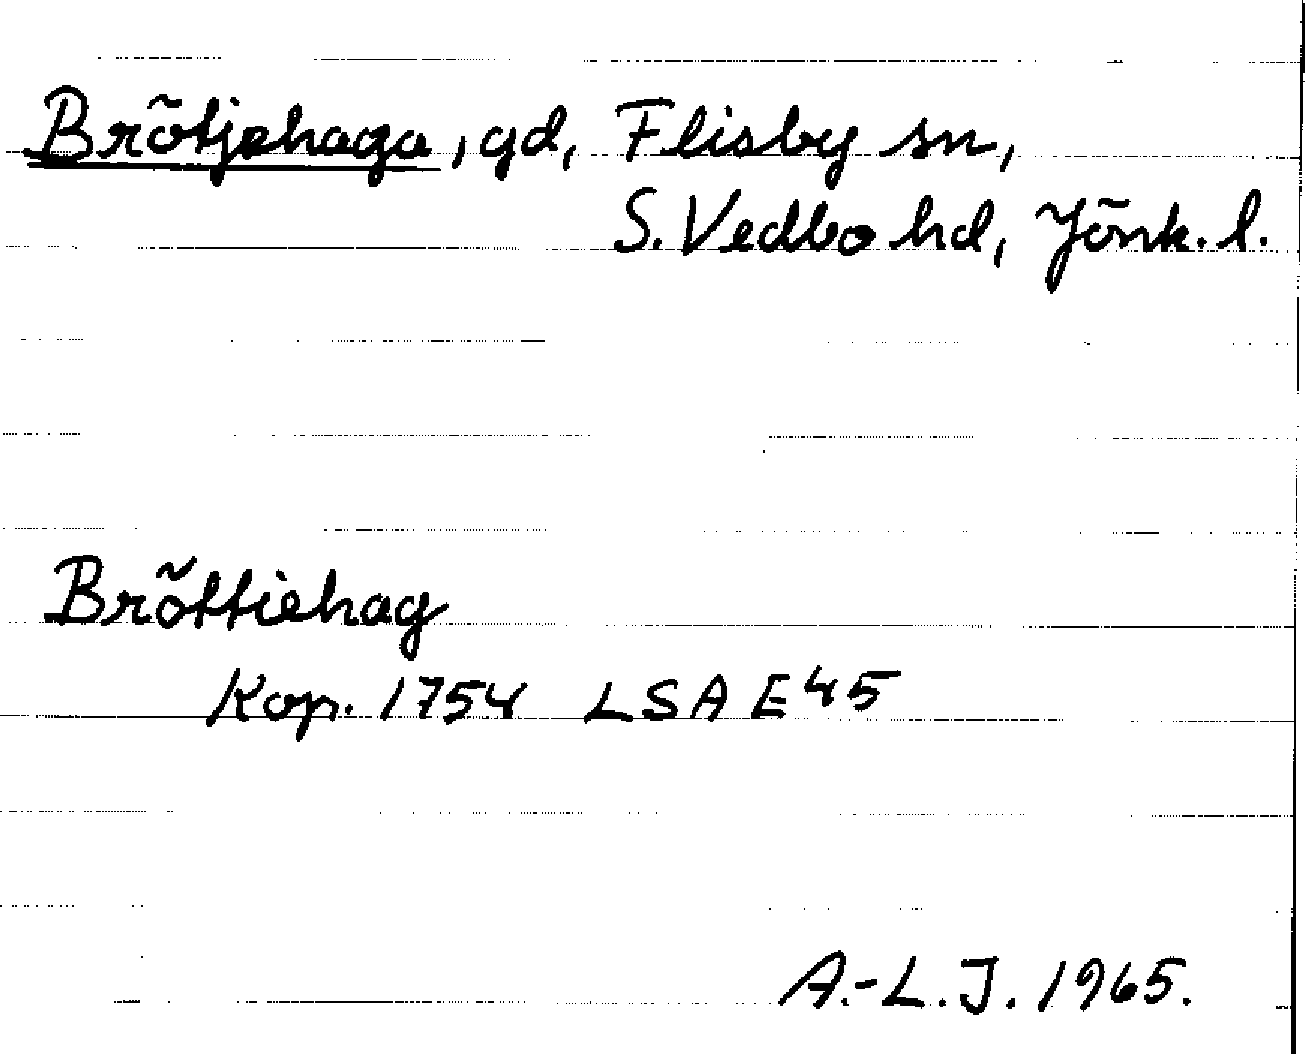 Brötjehaga, gd, Flisby sn,
S. Vedbo hd, Jönk. l.
Bröttiehag
Kop. 1754 LSA E45
A.-L.J. 1965.